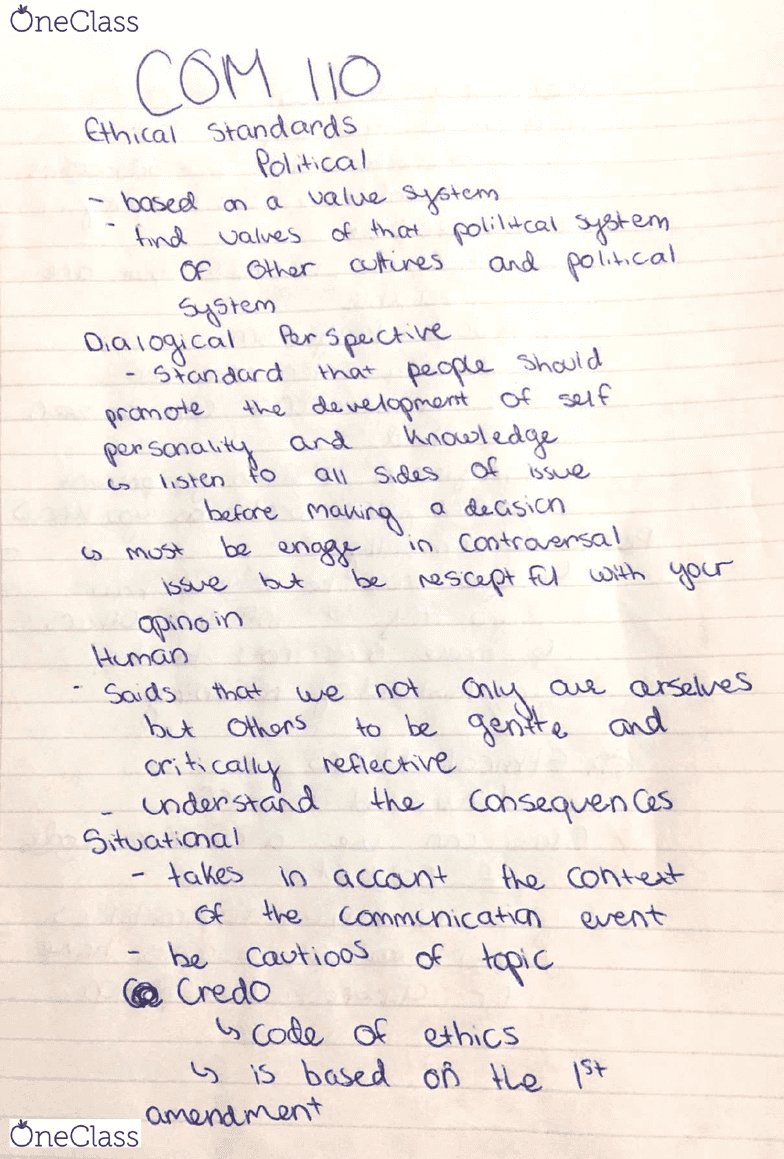 OneClass
COM 110
Ethical Standards
Political
- based on a value system
- find values of that polilitcal system
of other cultires and political
system
Dialogical Perspective
- Standard that people should
promote the development of self
personality and knowledge
↳ listen to all sides of issue
before making a decision
↳ must be engage in controversal
issue but be rescept ful with your
opinoin
Human
- Saids that we not only owe ourselves
but others to be gentle and
critically reflective
- understand the consequences
Situational
- takes in account the context
of the communication event
- be cautioos of topic
Credo
↳ code of ethics
↳ is based on the 1st
amendment
OneClass